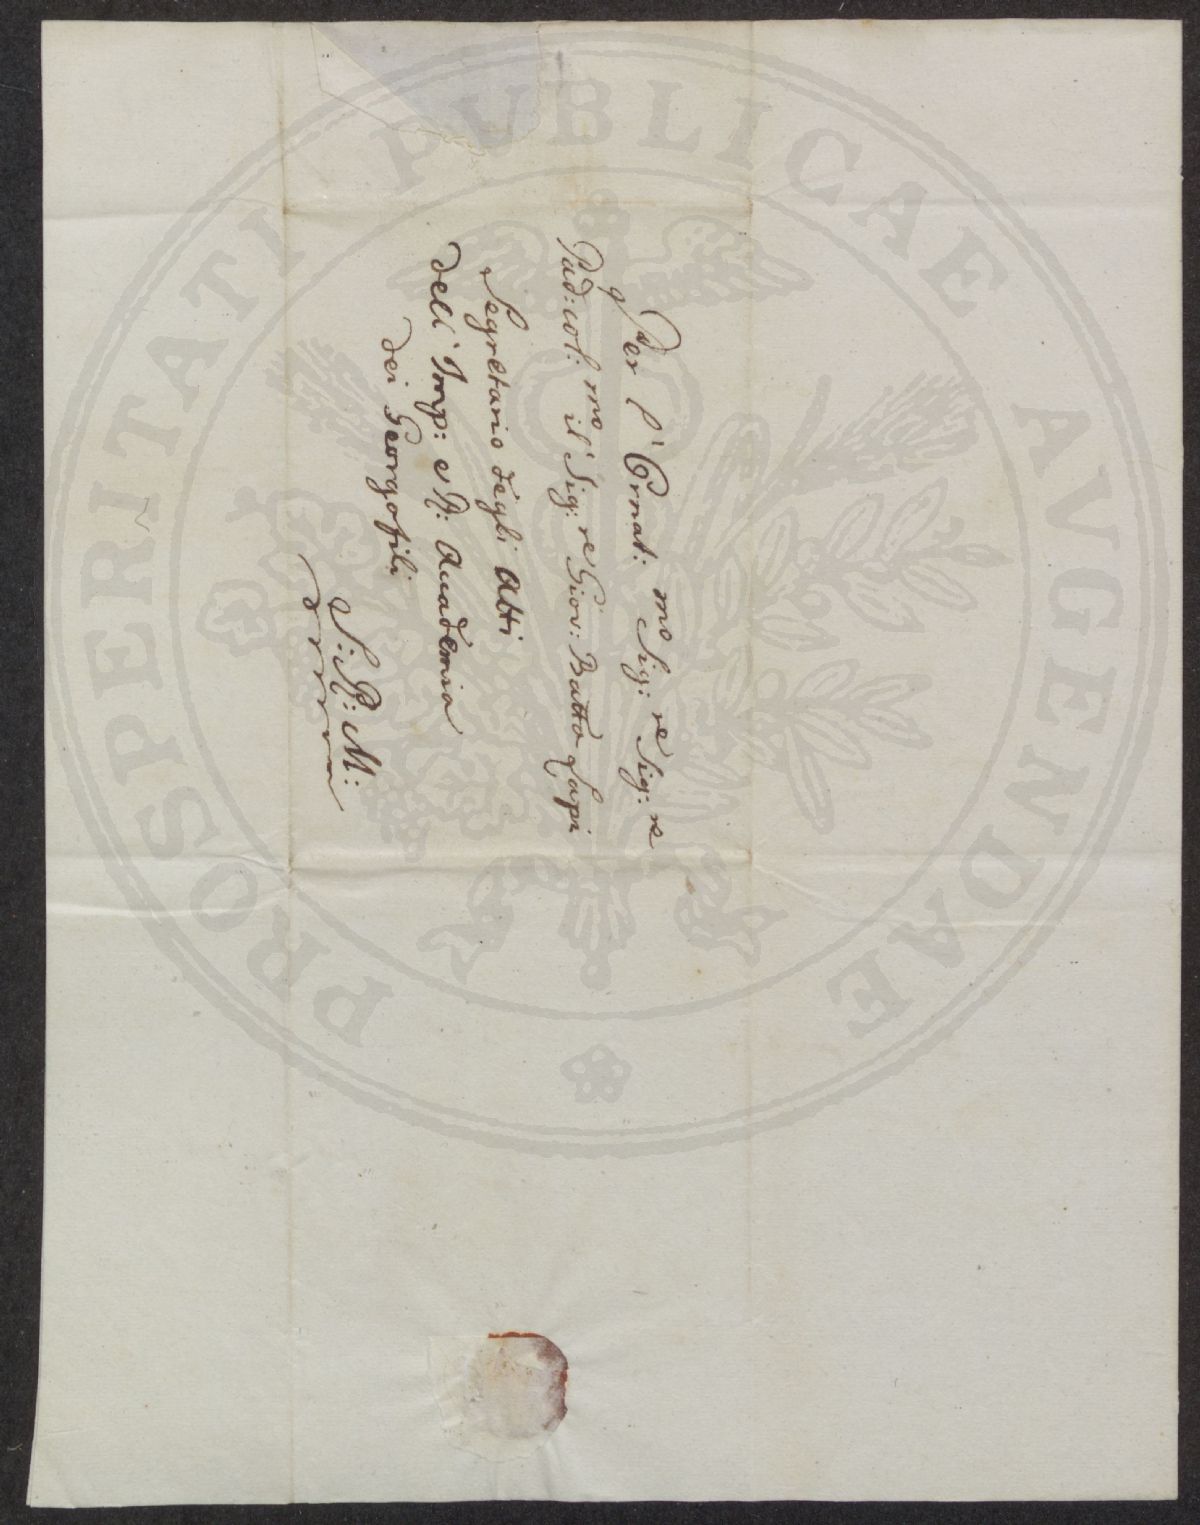 Per l'Ornat:mo Sig:re Sig:re
Pad: col:mo il Sig:re Giov: Batta Lapi
Segretario degli Atti
dell'Imp: e R: Accademia
dei Georgofili
S: R: M:
PROSPERITATI PUBLICAE AVGENDAE